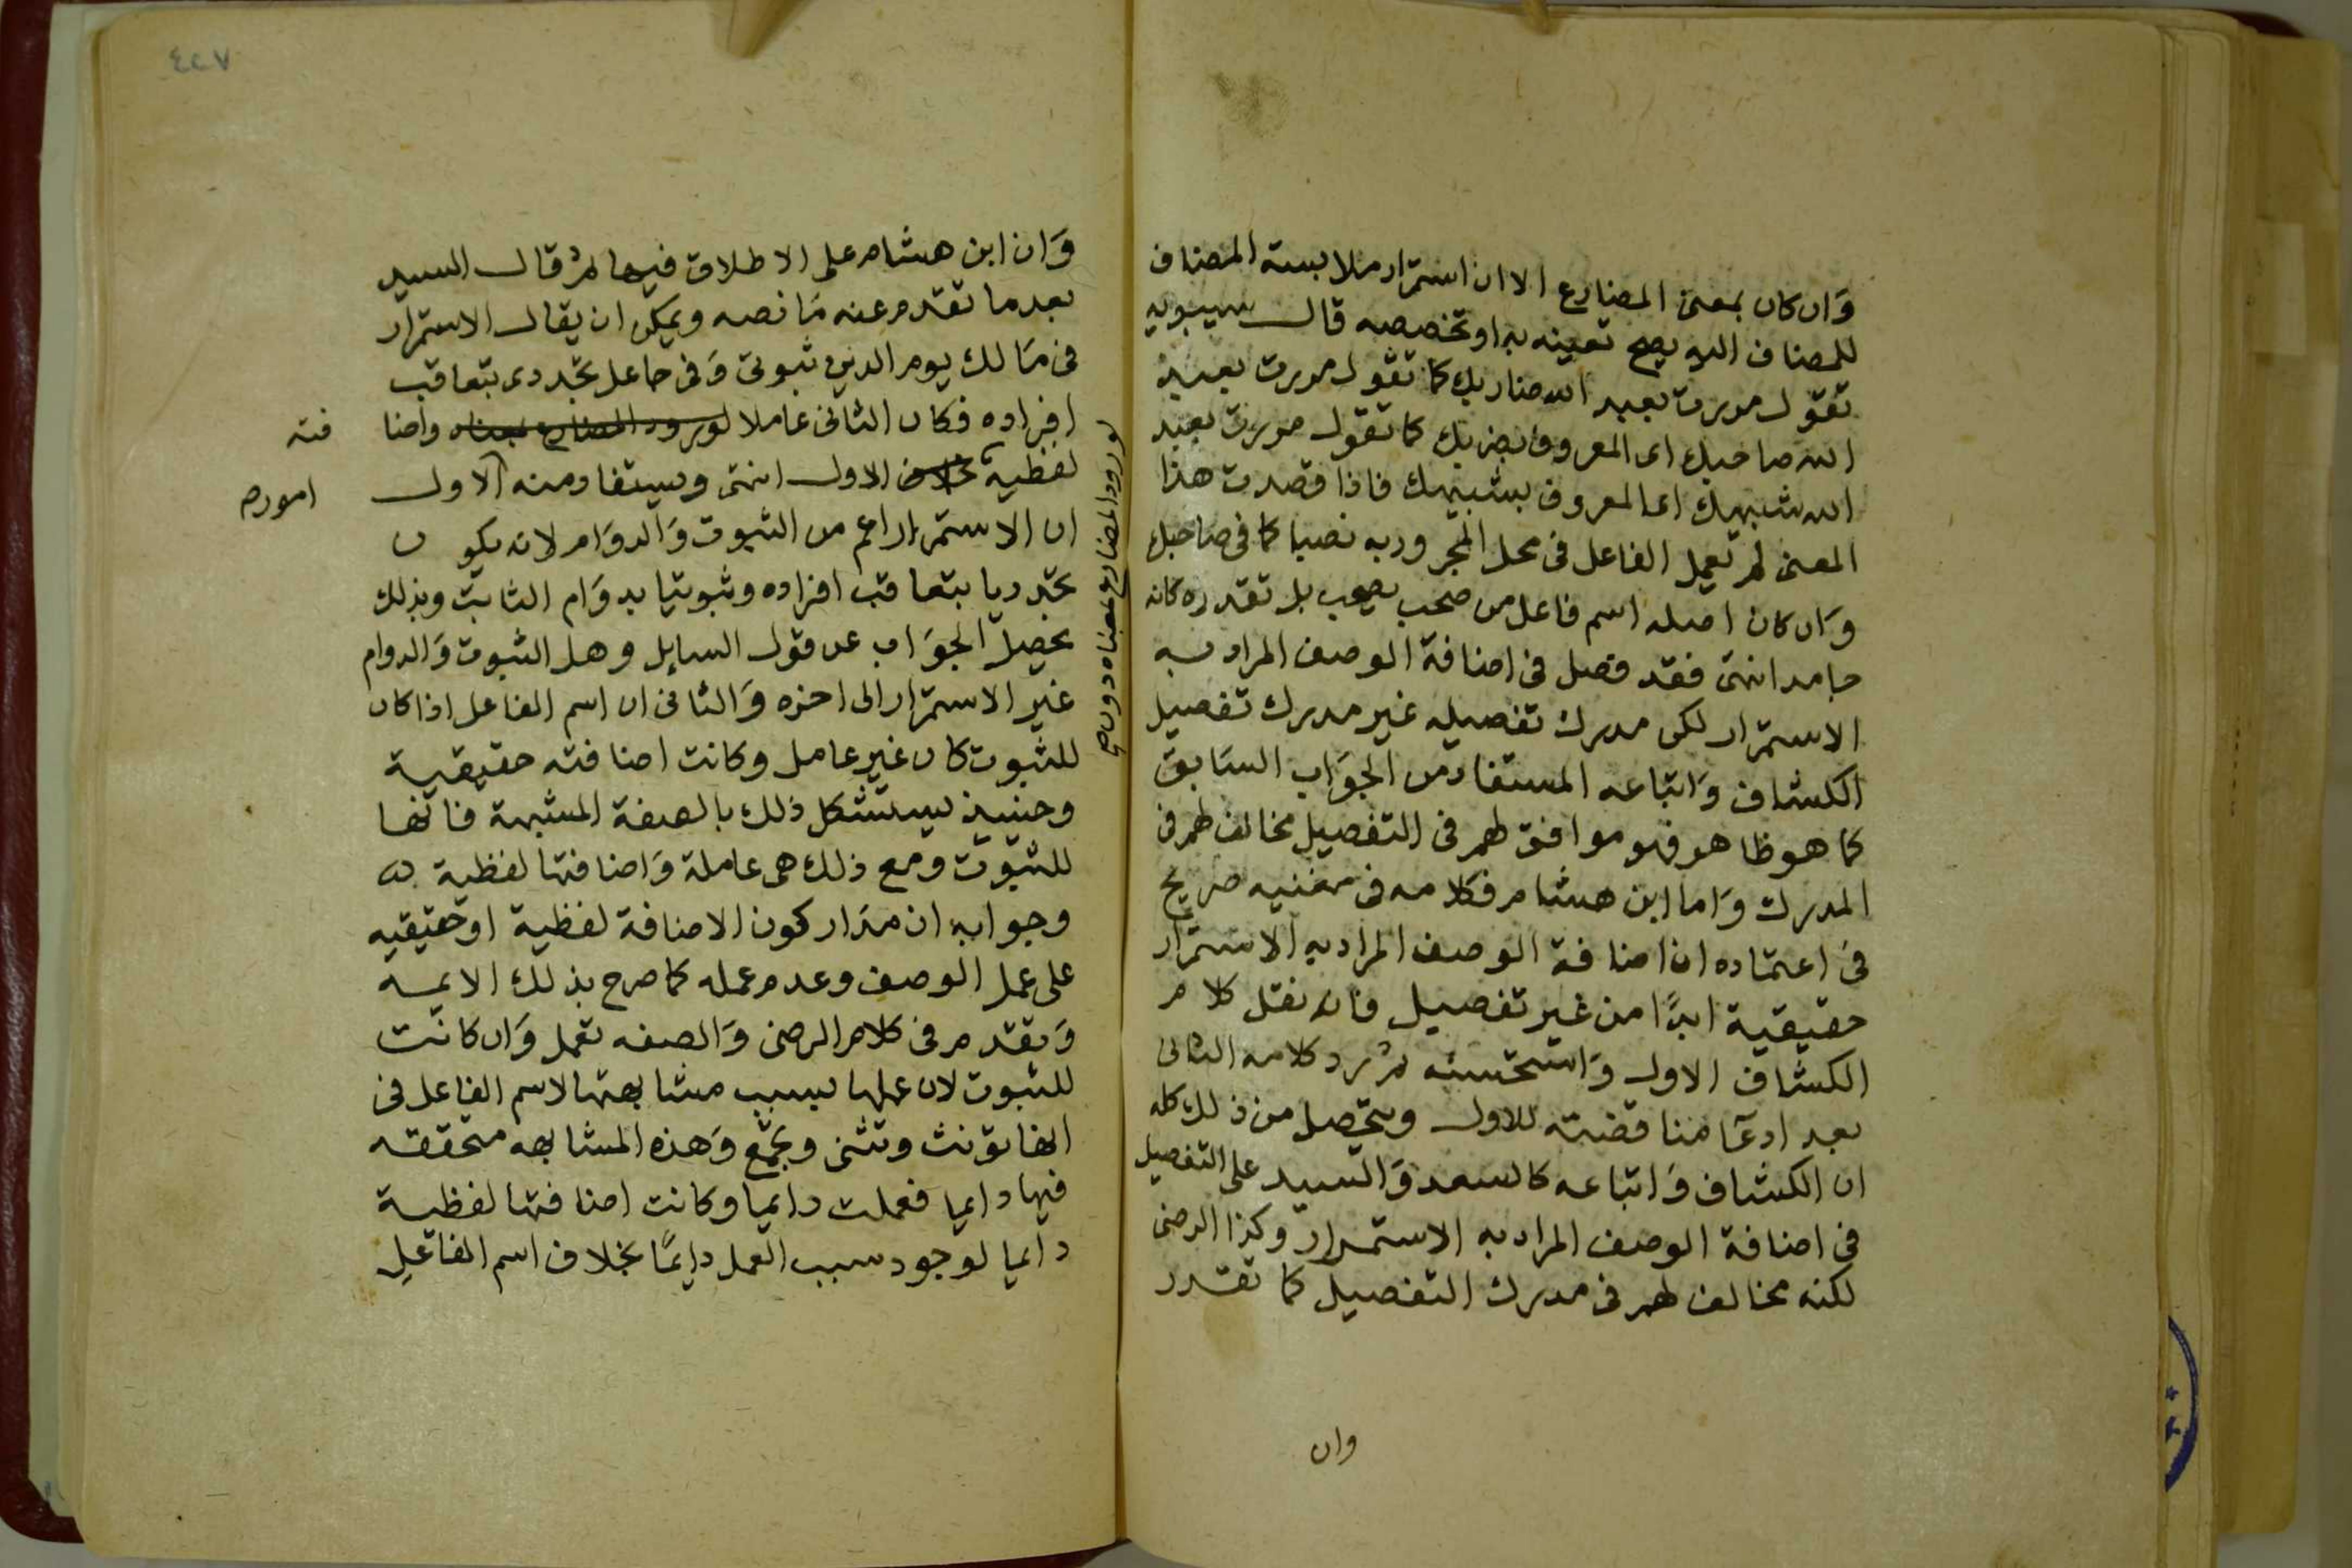 وان كان بمعنى المضارع الا ان استمرار ملابسة المضاف
للمضاف اليه يصح تعينه به او تخصصه قال سيبويه
تقول مررت بعبد الله ضاربك كما تقول مررت بعبد
الله صاحبك اى المعروف بضربك كما تقول مررت بعبد
الله شبيهك اى المعروف بشبهك فاذا قصدت هذا
المعنى لم تعمل الفاعل فى محل المجرور به نصبا كما فى صاحبك
وان كان اصله اسم فاعل من صحب يصحب بل تقدره كانه
جامد انتهى فقد فصل فى اضافة الوصف المراد به
الاستمرار لكن مدرك تفصيله غير مدرك تفصيل
الكشاف واتباعه المستفاد من الجواب السابق
كما هو ظاهر فهو موافق لهم فى التفصيل مخالف لهم فى
المدرك واما ابن هشام فكلامه فى مغنيه صريح
فى اعتماده ان اضافة الوصف المراد به الاستمرار
حقيقية ابدًا من غير تفصيل فانه نقل كلام
الكشاف الاول واستحسنه ثم رد كلامه الثانى
بعد ادعا مناقضته للاول ويتحصل من ذلك كله
ان الكشاف واتباعه كالسعد والسيد على التفصيل
فى اضافة الوصف المراد به الاستمرار وكذا الرضى
لكنه مخالف لهم فى مدرك التفصيل كما تقرر
وان
٤٢٧
وان ابن هشام على الاطلاق فيها ثم قال السيد
بعد ما تقدم عنه ما نصه ويمكن ان يقال الاستمرار
فى مالك يوم الدين ثبوتى وفى جاعل تجددى بتعاقب
افراده فكان الثانى عاملا لورود المضارع بمعناه واضا
فته
لفظية بخلاف الاول انتهى ويستفاد منه الاول
امور
ان الاستمرار اعم من الثبوت والدوام لانه يكون
تجدديا بتعاقب افراده وثبوتيا بدوام الثابت وبذلك
يحصل الجواب عن قول السايل وهل الثبوت والدوام
غير الاستمرار الى اخره والثانى ان اسم الفاعل اذا كان
للثبوت كان غير عامل وكانت اضافته حقيقية
وحينيذ يستشكل ذلك بالصفة المشبهة فانها
للثبوت ومع ذلك هى عاملة واضافتها لفظية
وجوابه ان مدار كون الاضافة لفظية او حقيقيه
على عمل الوصف وعدم عمله كما صرح بذلك الايمه
وتقدم فى كلام الرضى والصفه تعمل وان كانت
للثبوت لان عملها بسبب مشابهتها لاسم الفاعل فى
انها تؤنث وتثنى وتجمع وهذه المشابهه متحققه
فيها دايما فعملت دايما وكانت اضافتها لفظية
دايما لوجود سبب العمل دايمًا بخلاف اسم الفاعل
لورود المضارع بمعناه دون